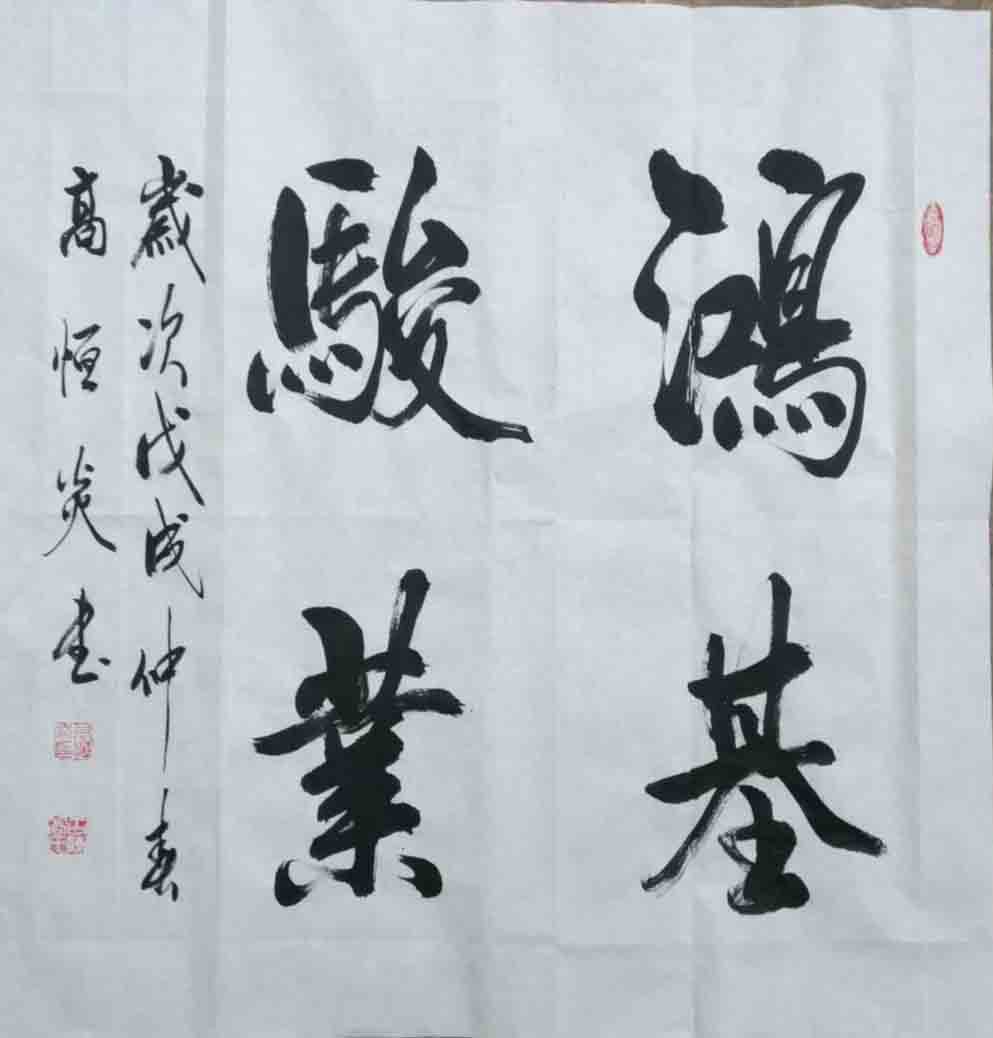 鴻基
駿業
歲次戊戌仲春
高恒炎书